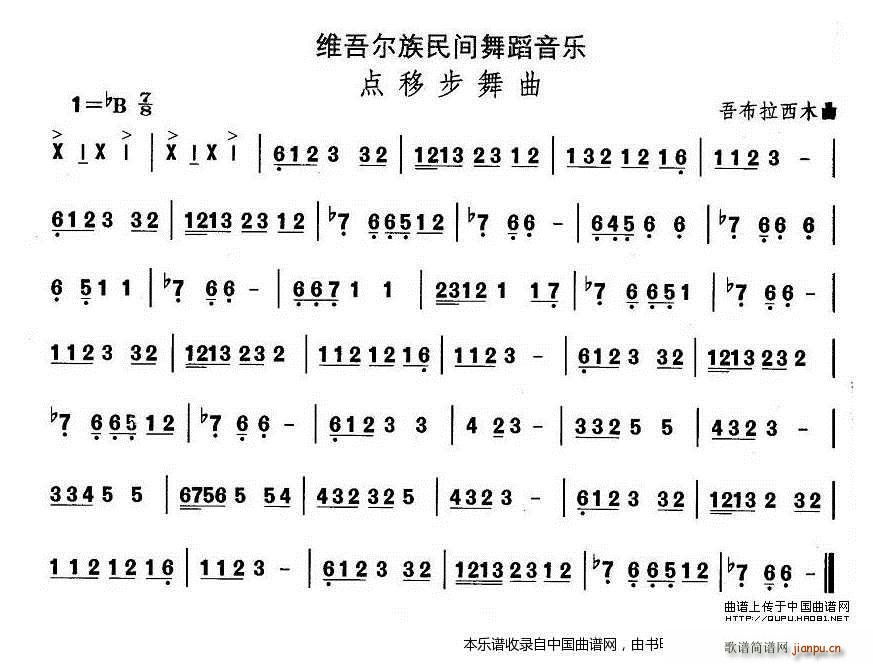 维吾尔族民间舞蹈音乐
点移步舞曲
1=♭B 7/8
吾布拉西木曲
X I X I | X I X I | 6123 32 | 1213 23 12 | 132 12 16 | 1123 – |
6123 32 | 1213 23 12 | ♭7 66512 | ♭7 66 – | 645 6 6 | ♭7 66 6 |
6 51 1 | ♭7 66 – | 667 1 1 | 2312 1 17 | ♭7 6651 | ♭7 66 – |
1123 32 | 1213 232 | 112 12 16 | 1123 – | 6123 32 | 1213 232 |
♭7 665 12 | ♭7 66 – | 6123 3 | 4 23 – | 3325 5 | 4323 – |
334 5 5 | 6756 5 54 | 432 32 5 | 432 3 – | 6123 32 | 1213 2 32 |
112 12 16 | 1123 – | 6123 32 | 1213 2312 | ♭7 665 12 | ♭7 66 –
曲谱上传于中国曲谱网
HTTP://QUPU.HAO81.NET
本乐谱收录自中国曲谱网，由书
歌谱简谱网 jianpu.cn